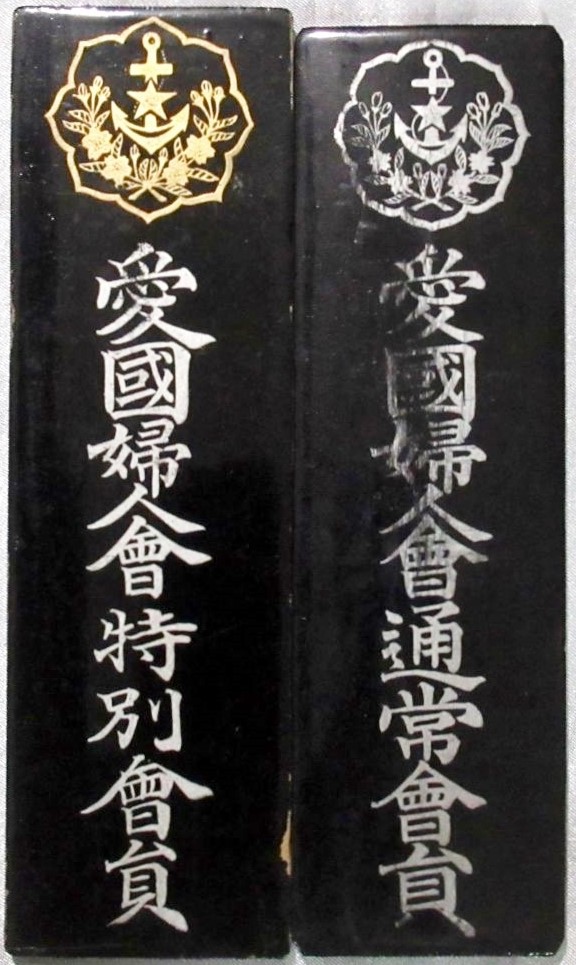 愛國婦人會特別會員
愛國婦人會通常會員